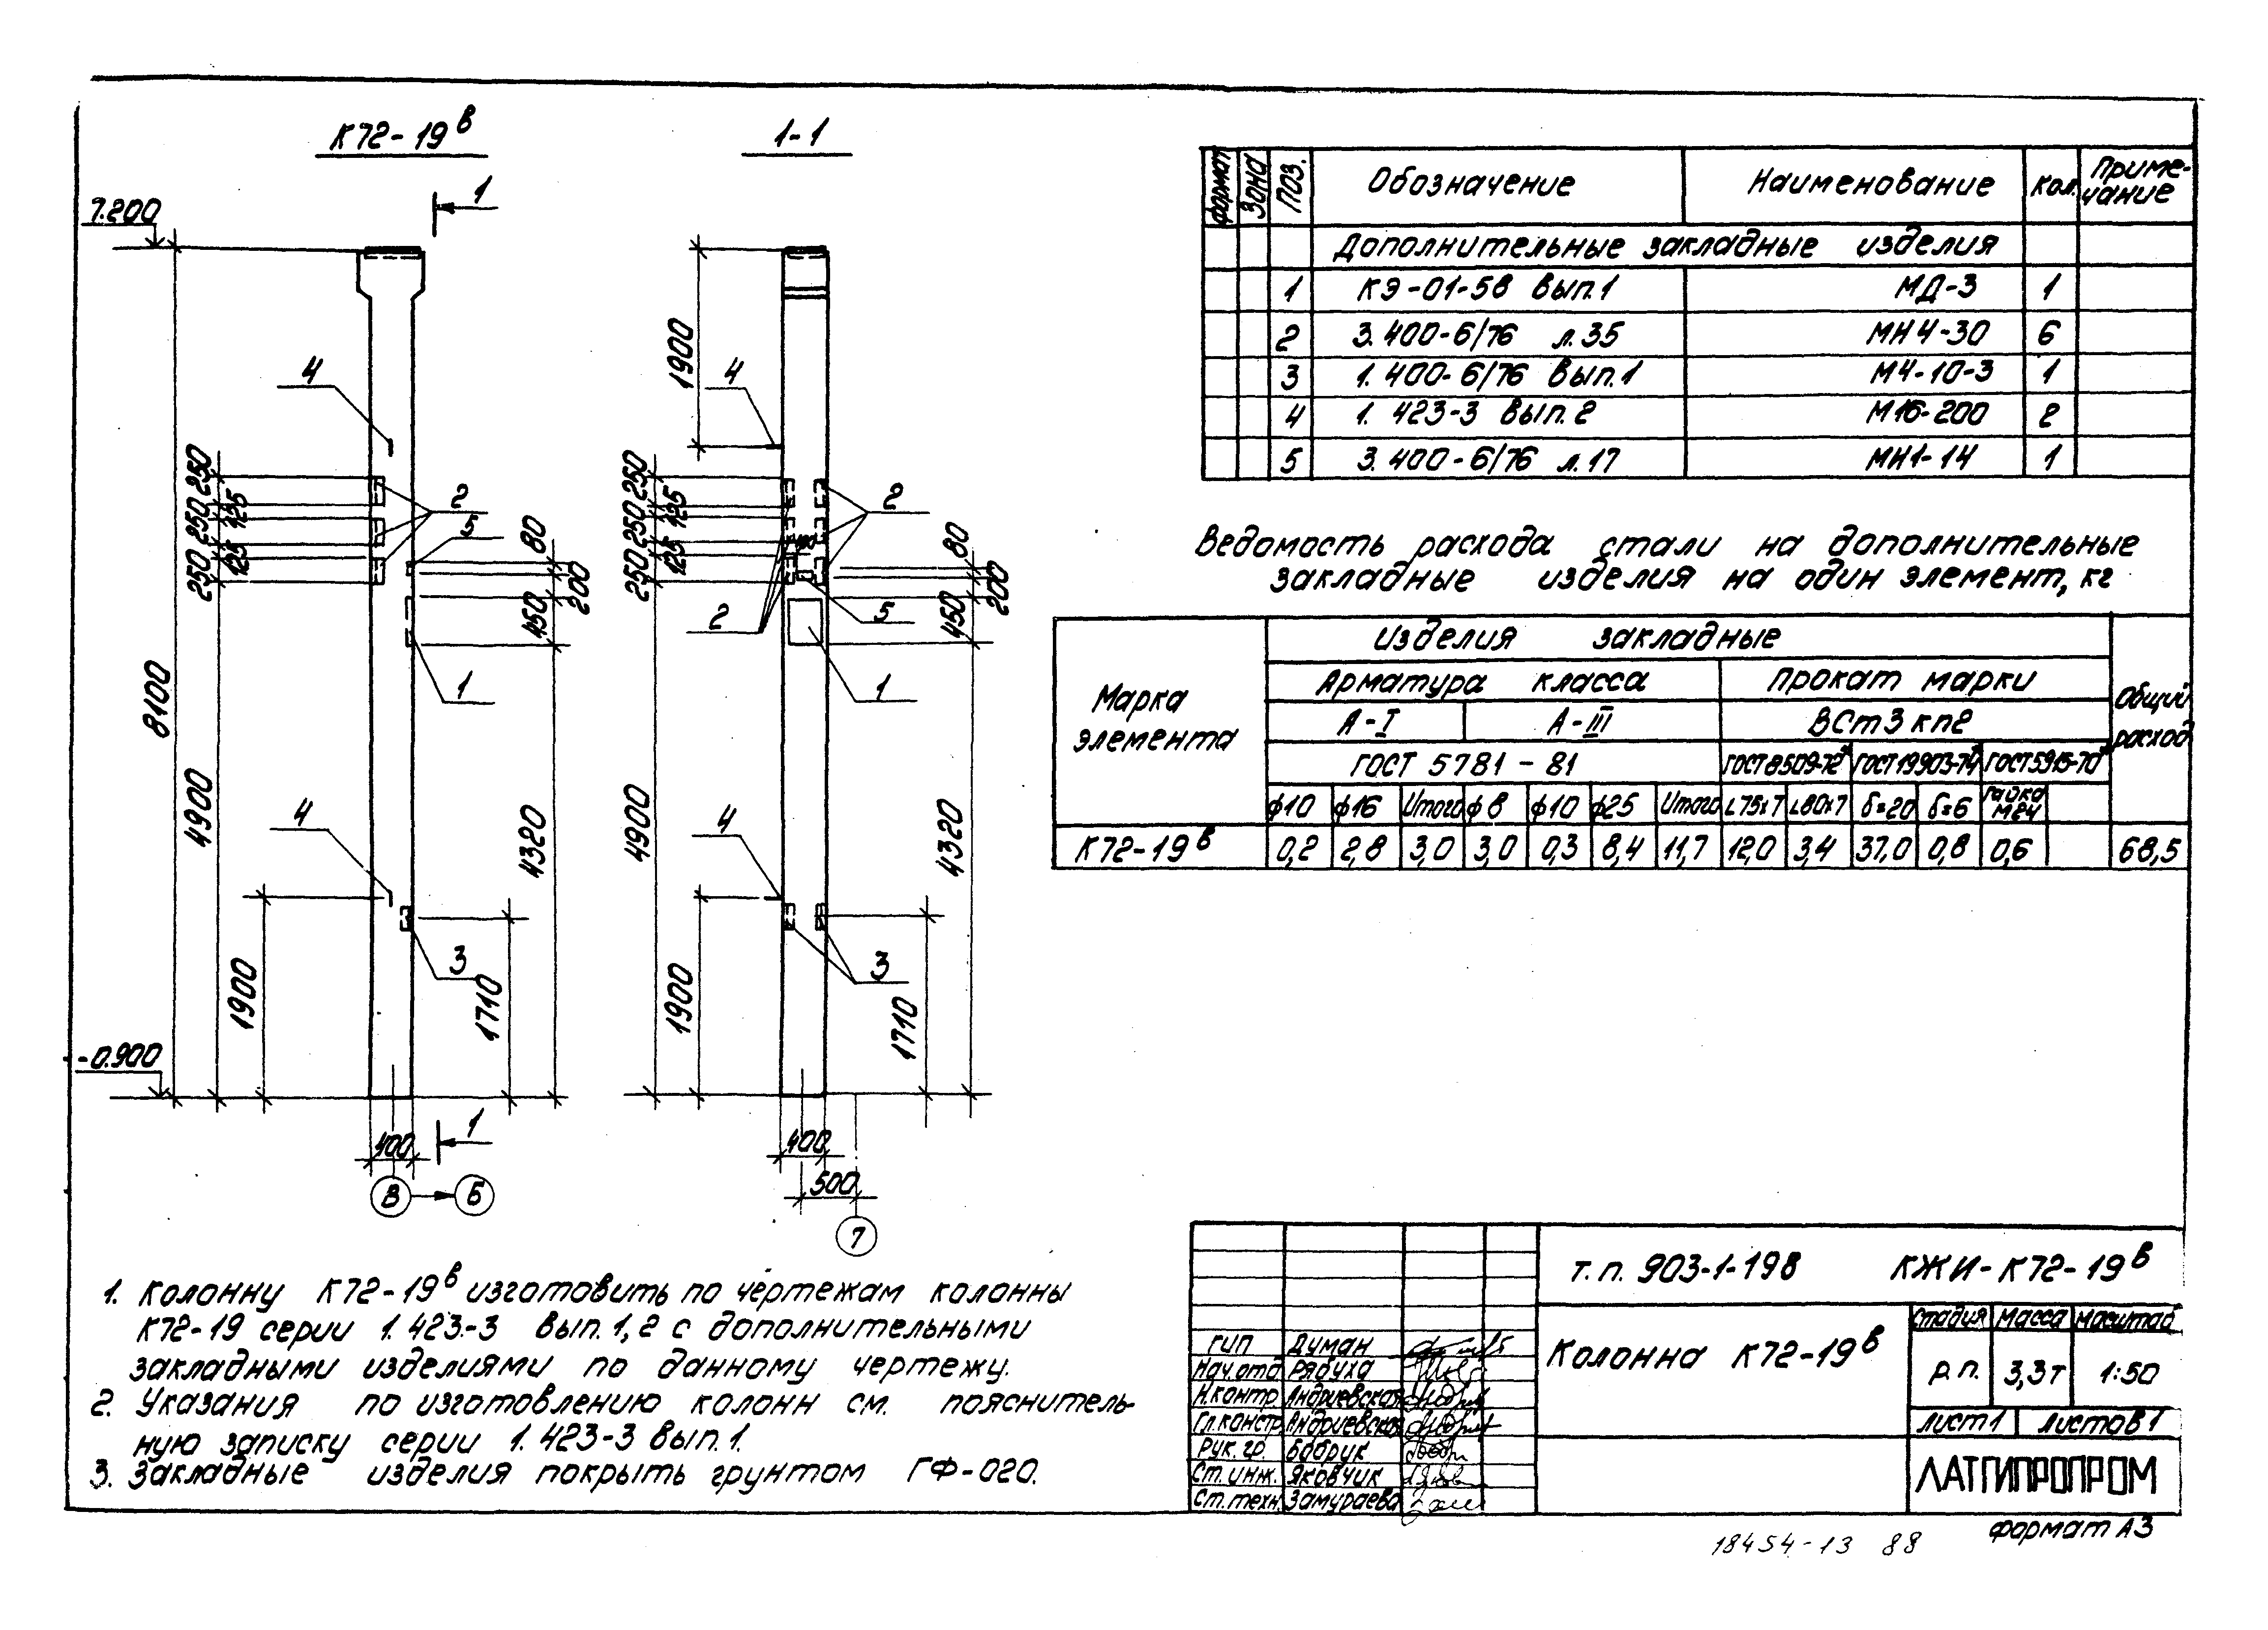 К72-19в
1-1
7.200
1
4
250
125
250
125
250
2
5
80
200
450
1
8100
4900
4
4320
1900
3
1710
-0.900
1
400
В
Б
1900
4
250
125
250
125
250
2
2
5
80
200
450
1
4900
4
4320
1900
3
1710
400
500
7
Формат Зона Поз. Обозначение Наименование Кол. Приме-
чание
Дополнительные закладные изделия
1 КЭ-01-58 вып.1 МД-3 1
2 3.400-6/76 л.35 МН4-30 6
3 1.400-6/76 вып.1 М4-10-3 1
4 1.423-3 вып.2 М16-200 2
5 3.400-6/76 л.17 МН1-14 1
Ведомость расхода стали на дополнительные
закладные изделия на один элемент, кг
Марка
элемента
Изделия закладные
Общий
расход
Арматура класса Прокат марки
А-I А-III ВСт3кп2
ГОСТ 5781-81 ГОСТ8509-72* ГОСТ19903-74* ГОСТ5915-70*
ф10 ф16 Итого ф8 ф10 ф25 Итого L75х7 L80х7 δ=20 δ=6 Гайка
М24
К72-19в 0,2 2,8 3,0 3,0 0,3 8,4 11,7 12,0 3,4 37,0 0,8 0,6 68,5
1. Колонну К72-19в изготовить по чертежам колонны
К72-19 серии 1.423-3 вып.1,2 с дополнительными
закладными изделиями по данному чертежу.
2. Указания по изготовлению колонн см. пояснитель-
ную записку серии 1.423-3 вып.1.
3. Закладные изделия покрыть грунтом ГФ-020.
т.п. 903-1-198 КЖИ-К72-19в
Колонна К72-19в
Стадия Масса Масштаб
р.п. 3,3т 1:50
Лист1 Листов1
ГИП Думан
Нач.отд Рябуха
Н.контр. Андриевская
Гл.констр. Андриевская
Рук.гр. Бобрук
Ст.инж. Яковчик
Ст.техн. Замураева
ЛАТГИПРОПРОМ
Формат А3
18454-13 88